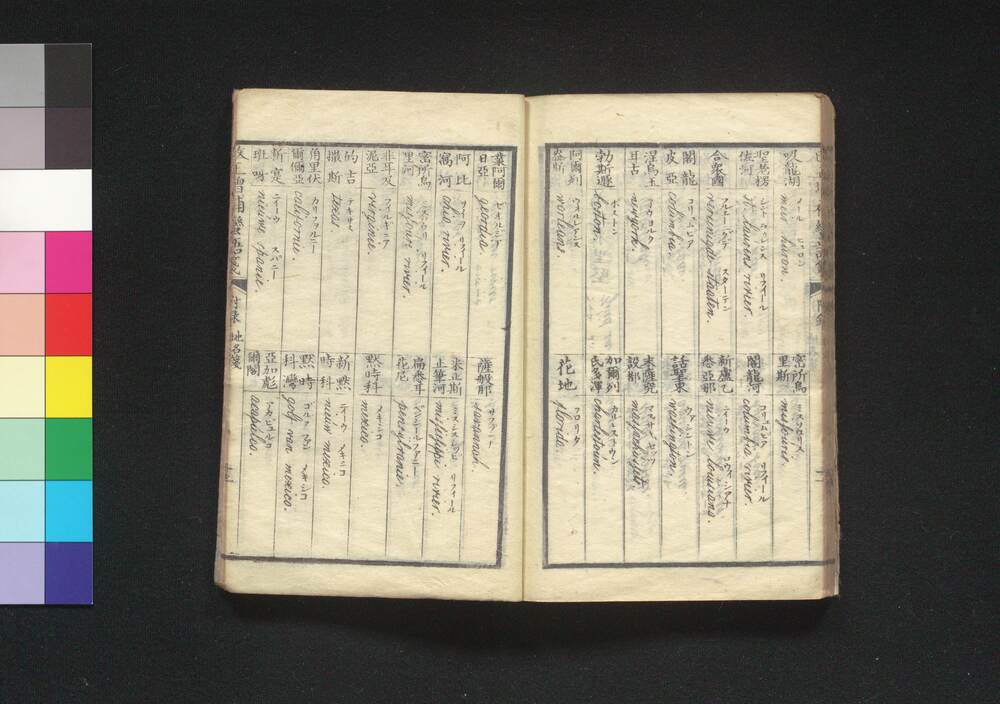 吸龍湖
メール ヒュロン
meer huron.
聖老楞
佐河
シント ラウレンス リフィール
st. laurens rivier.
合衆國
スターテン
vereenigde staaten.
閣龍
皮亞
コロムビア
columbia.
涅烏玉
耳古
ネウヨルク
newyork.
勃斯遯
ボストン
boston.
阿爾列
worleans.
密所烏
里斯
ミスソウリス
misfouris.
閣龍河
コロムビア リフィール
columbia rivier.
新盧乙
悉亞那
ニーウ ロウィシアナ
nieuwe louisiana.
話聖東
ワシントン
washington.
末薩諸
設都
マスサセッツ
加爾列
氏多渾
charlestown.
花地
フロリダ
floride.
葉阿爾
日亞
ゼオルジア
georgia.
阿比
窩河
ヲハイヲ リフィール
ohio rivier.
密所烏
里河
ミスソウリ リフィール
misfouri rivier.
非耳及
泥亞
フィルギニア
virginie.
的吉
撒斯
テキサス
texas
角里伏
爾爾亞
カリフヲルニー
californie.
新寔
班呀
ニイーウ スパニー
nieuwe spanie.
薩般那
サファンナ
savannah.
米正斯
正筆河
ミスシスシッピ リフィール
misfisfippi rivier.
扁悉耳
花尼
ペンシールファニー
pensylvanie.
黙時科
メキシコ
mexico.
新黙
時科
ニーウ メキシコ
nieuw mexico.
黙時
科灣
ゴルフ ファン メキシコ
golf van mexico.
亞加彪
爾閣
アカピュルコ
acapulco.
改正増補蠻語箋
附録 地名箋